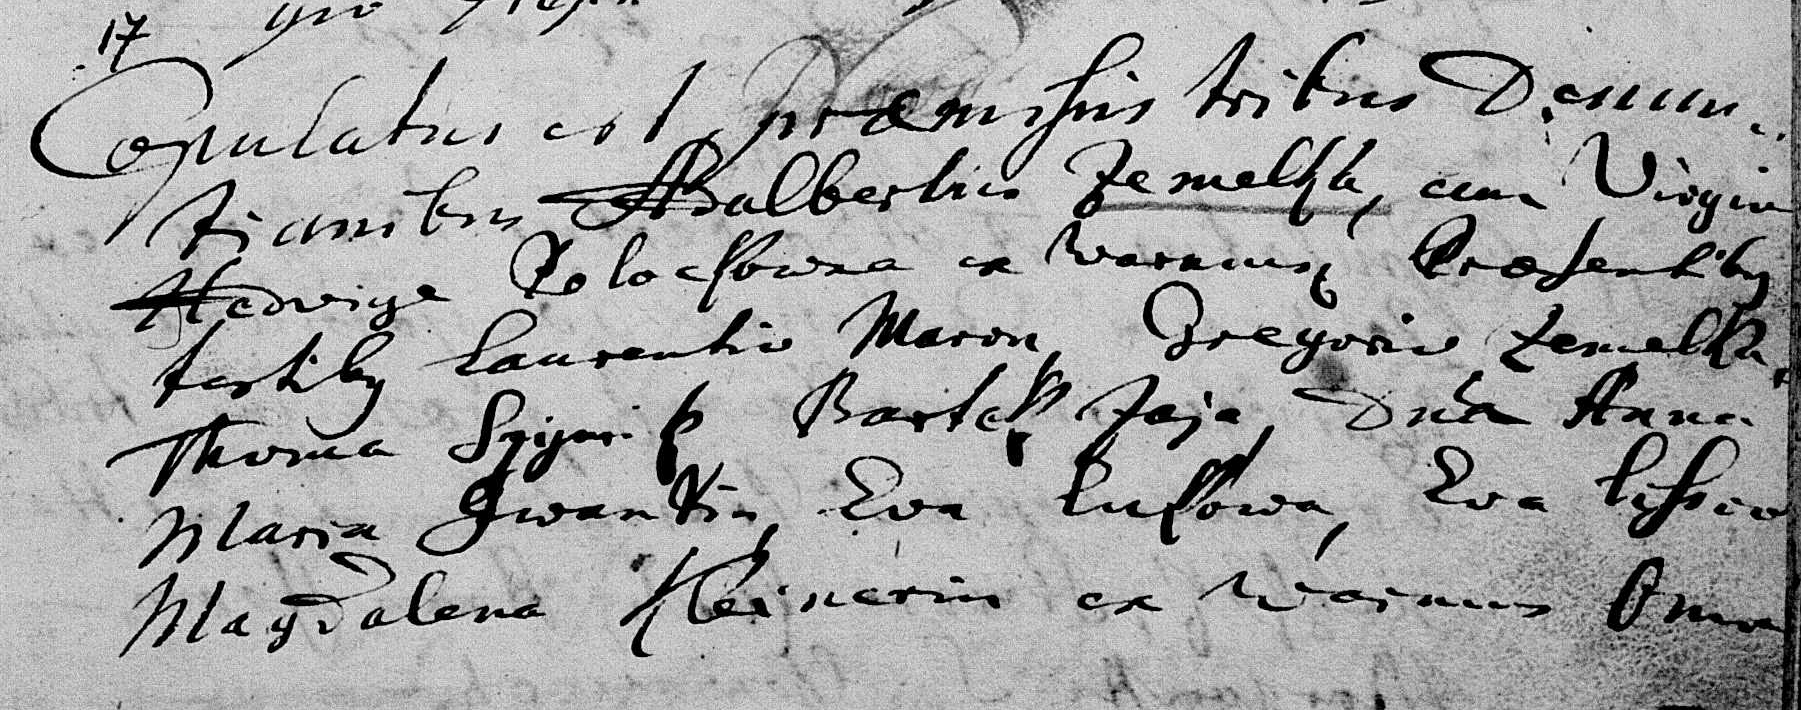 17
Copulatus est praemissis tribus Denun-
tianibus Adalbertus Zemelka, cum Virgin
Hedwige Polockowna ex Warnius Praesentibus
testibus Laurentio Maron, Gregorio Zemelka,
Thoma Bartek Jaja, Dna Anna
Maria Iwankin, Eva Luksowa, Eva
Magdalena Kleinerin ex Warnius Omn